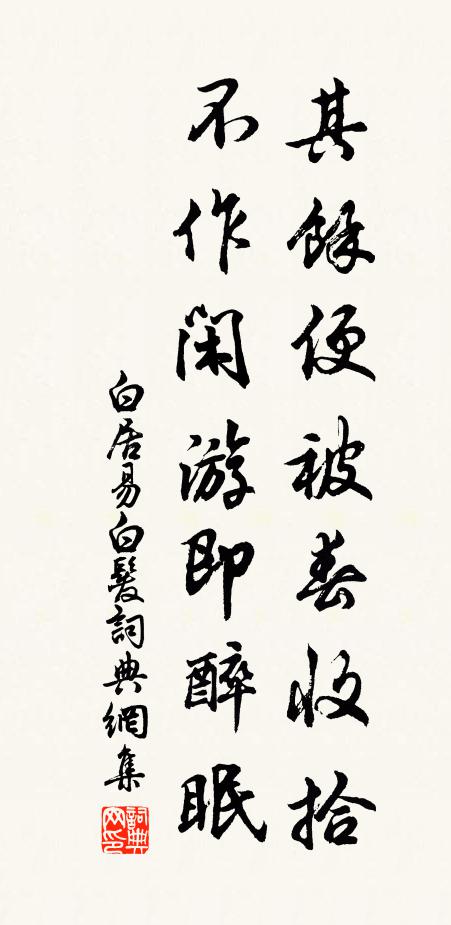 其餘便被春收拾
不作閑游即醉眠
白居易白髮詞典網集
詞典
网印